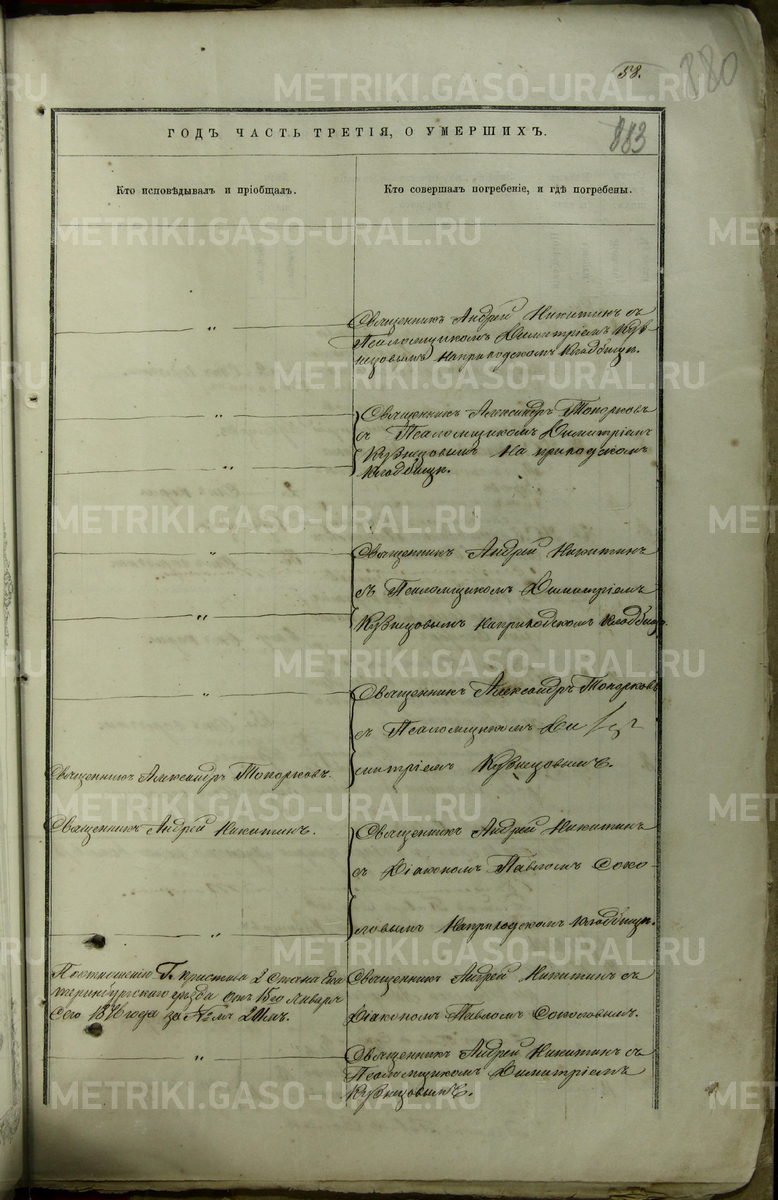 58.
880
883
ГОДЪ ЧАСТЬ ТРЕТІЯ, О УМЕРШИХЪ.
Кто исповѣдывалъ и пріобщалъ.
Кто совершалъ погребеніе, и гдѣ погребены.
„
Священникъ Андрей Никитинъ съ
Псаломщикомъ Димитріемъ Куз-
нецовымъ На приходскомъ Кладбищѣ.
„
Священникъ Александръ Топорковъ
съ Псаломщикомъ Димитріемъ
„
Кузнецовымъ На приходскомъ
Кладбищѣ.
„
Священникъ Андрей Никитинъ
съ Псаломщикомъ Димитріемъ
„
Кузнецовымъ На приходскомъ Кладбищѣ.
„
Священникъ Александръ Топорковъ
съ Псаломщикомъ Ди
Священникъ Александръ Топорковъ.
митріемъ Кузнецовымъ.
Священникъ Андрей Никитинъ.
Священникъ Андрей Никитинъ
съ Діакономъ Павломъ Соко-
„
ловымъ На приходскомъ Кладбищѣ.
По отношенію Г. пристава 2 Стана Ека
теринбургскаго уѣзда отъ 15го Января
сего 1876 года за №мъ 20мъ.
Священникъ Андрей Никитинъ съ
Діакономъ Павломъ Соколовымъ.
„
Священникъ Андрей Никитинъ съ
Псаломщикомъ Димитріемъ
Кузнецовымъ.
METRIKI.GASO-URAL.RU